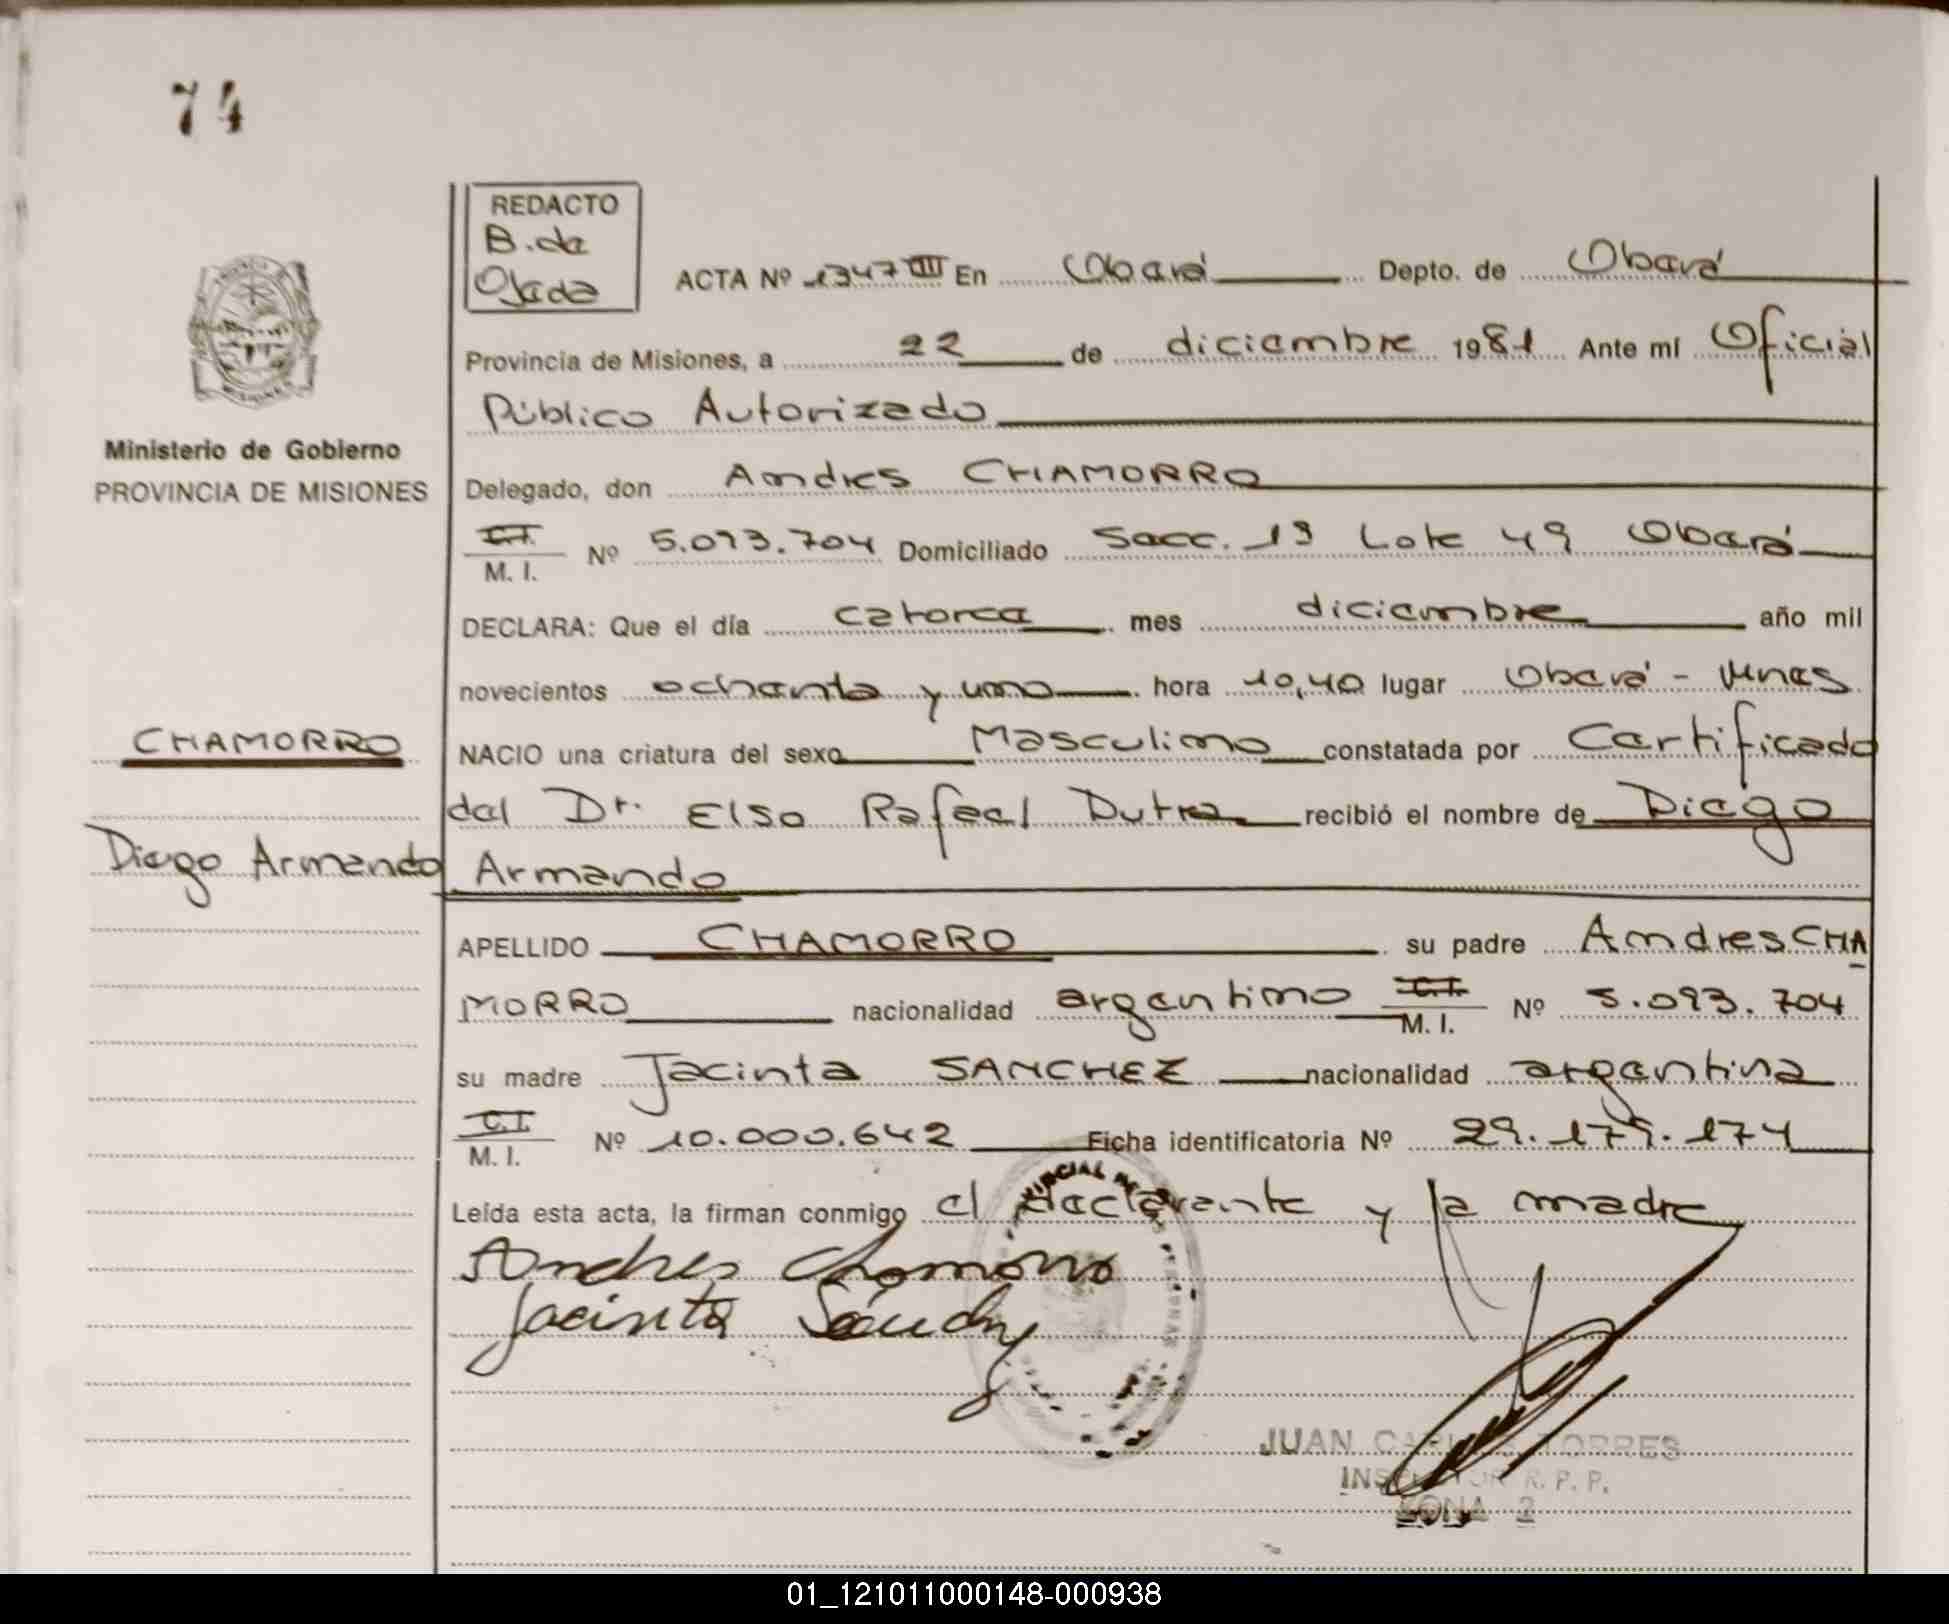 74
REDACTO
B. de
Ojeda
ACTA Nº 1347 VIII En Oberá Depto. de Oberá
Provincia de Misiones, a 22 de diciembre 1981 Ante mí Oficial
Público Autorizado
Ministerio de Gobierno
PROVINCIA DE MISIONES
Delegado, don Andres CHAMORRO
C.I.
M. I. Nº 5.093.704 Domiciliado Secc. 13 Lote 49 Oberá
DECLARA: Que el día catorce mes diciembre año mil
novecientos ochenta y uno hora 10,40 lugar Oberá - Mnes
CHAMORRO
NACIO una criatura del sexo Masculino constatada por Certificado
del Dr. Elso Rafael Dutra recibió el nombre de Diego
Diego Armando
Armando
APELLIDO CHAMORRO su padre Andres CHA
MORRO nacionalidad argentino C.I. M. I. Nº 5.093.704
su madre Jacinta SANCHEZ nacionalidad argentina
C.I.
M. I. Nº 10.000.642 Ficha identificatoria Nº 29.179.174
Leída esta acta, la firman conmigo el declarante y la madre
Andres Chamorro
Jacinta Sánchez
JUAN CARLOS TORRES
INSPECTOR R. P. P.
ZONA 2
01_121011000148-000938